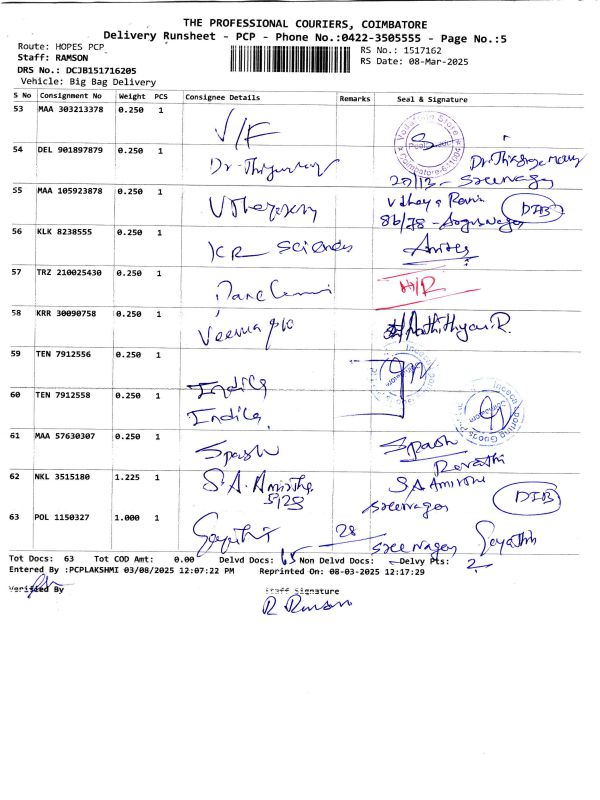 THE PROFESSIONAL COURIERS, COIMBATORE
Delivery Runsheet - PCP - Phone No.:0422-3505555 - Page No.:5
Route: HOPES PCP
Staff: RAMSON
DRS No.: DCJB151716205
Vehicle: Big Bag Delivery
RS No.: 1517162
RS Date: 08-Mar-2025
S No Consignment No Weight PCS Consignee Details Remarks Seal & Signature
53 MAA 303213378 0.250 1 V/F
54 DEL 901897879 0.250 1
Sreenagar
55 MAA 105923878 0.250 1
86/78
56 KLK 8238555 0.250 1 KR Sciences
57 TRZ 210025430 0.250 1 H/R
58 KRR 30090758 0.250 1 Veena
59 TEN 7912556 0.250 1 Indila
60 TEN 7912558 0.250 1 Indila
61 MAA 57630307 0.250 1 Spash Spash
Revathi
62 NKL 3515180 1.225 1 S.A. Amirtha S A Amirtha
Sreenagar
63 POL 1150327 1.000 1 Gayathri 28 Sreenagar Gayathri
Tot Docs: 63 Tot COD Amt: 0.00 Delvd Docs: Non Delvd Docs: Delvy Pts: 2
Entered By :PCPLAKSHMI 03/08/2025 12:07:22 PM Reprinted On: 08-03-2025 12:17:29
Verified By Staff Signature
R Ramson